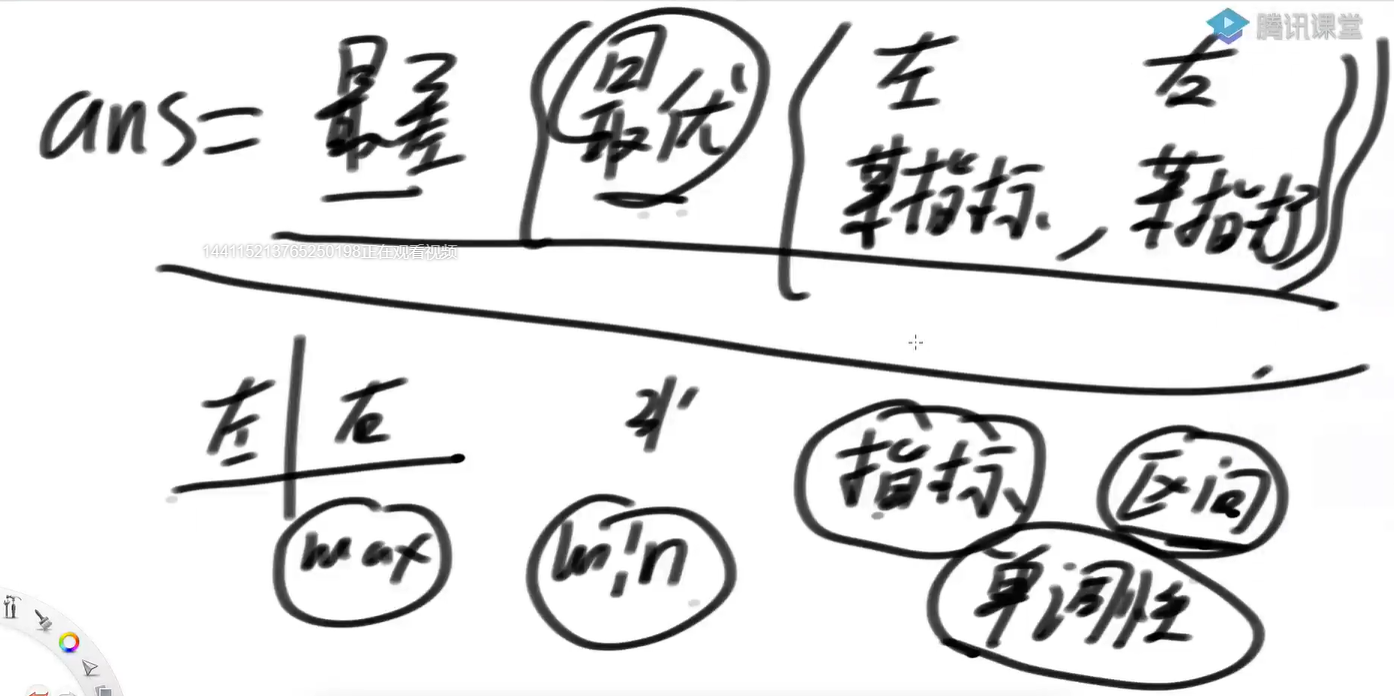 腾讯课堂
ans = 最差 ( 最优 ( 左 右
某指标, 某指标 ) )
144115213765250198正在观看视频
左 右 指标 区间
max min 单调性